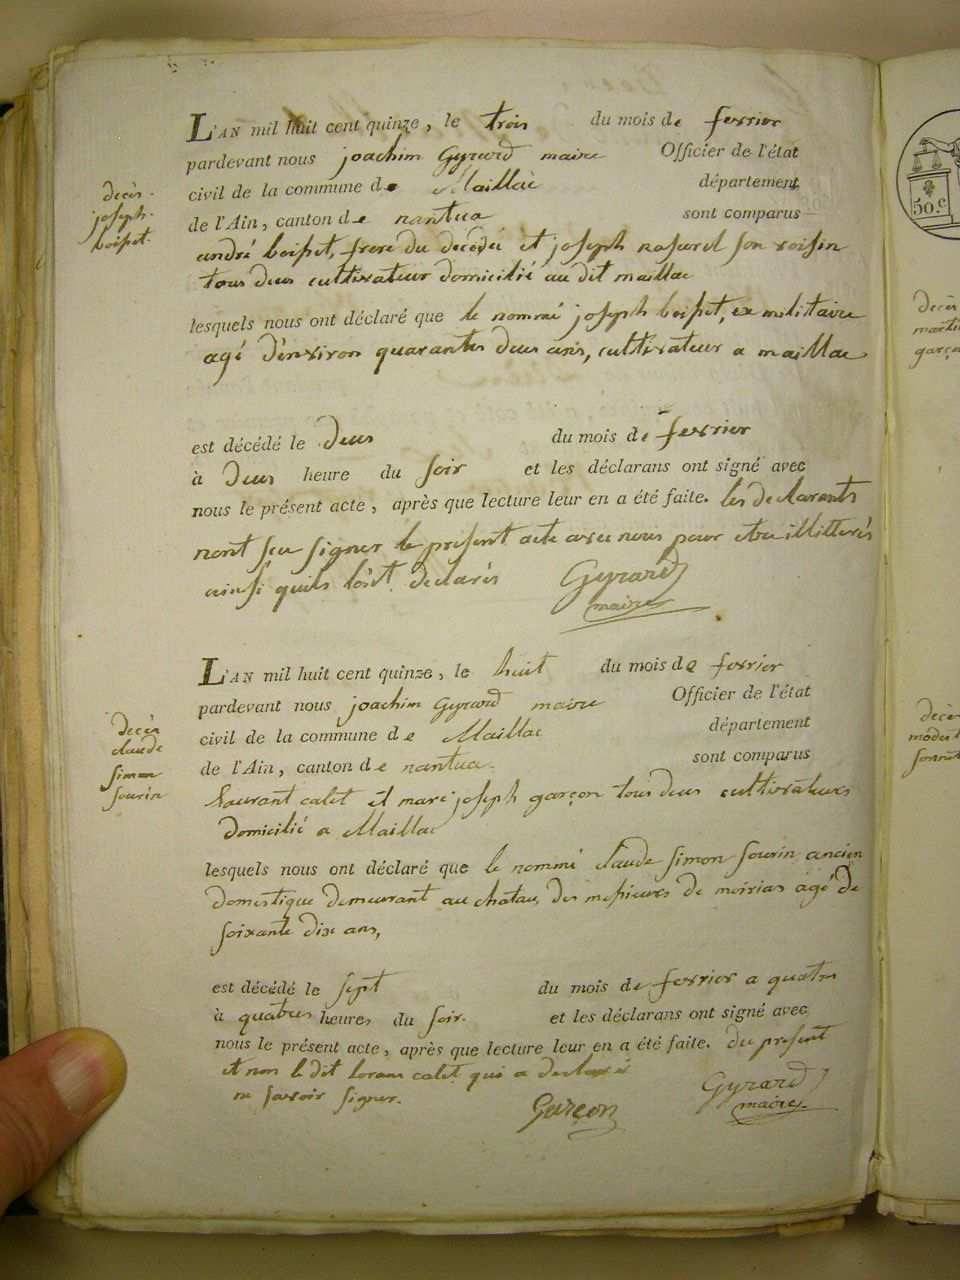 décès
joseph
boisset.
L'AN mil huit cent quinze, le trois du mois de fevrier
pardevant nous joachim Gyrard maire Officier de l'état
civil de la commune de Maillac département
de l'Ain, canton de nantua sont comparus
andré boisset, frere du décédéé et joseph nasurel son voisin
tous deux cultivateur domicilié au dit maillac
lesquels nous ont déclaré que le nommé joseph boisset, ex militaire
agé d'environ quarantes deux ans, cultivateur a maillac
est décédé le deux du mois de fevrier
à deux heure du soir et les déclarans ont signé avec
nous le présent acte, après que lecture leur en a été faite. les declarants
nont seu signer le présent acte avec nous pour etre illitterés
ainsi quils l'ont declarés Gyrard
maire
décès
claude
simon
sourin
L'AN mil huit cent quinze, le huit du mois de fevrier
pardevant nous joachim Gyrard maire Officier de l'état
civil de la commune de Maillac département
de l'Ain, canton de nantua. sont comparus
Laurant calet et marc joseph garçon tous deux cultivateurs
domicilié a Maillac
lesquels nous ont déclaré que le nommé claude simon sourin ancien
domestique demeurant au chatau des messieurs de moirias agé de
soixante dix ans,
est décédé le sept du mois de fevrier a quatre
à quatres heures du soir. et les déclarans ont signé avec
nous le présent acte, après que lecture leur en a été faite. du present
et non le dit Loran calet qui a declaré
ne savoir signer.
Garçon Gyrard
maire
50.c
décès
garço
décès